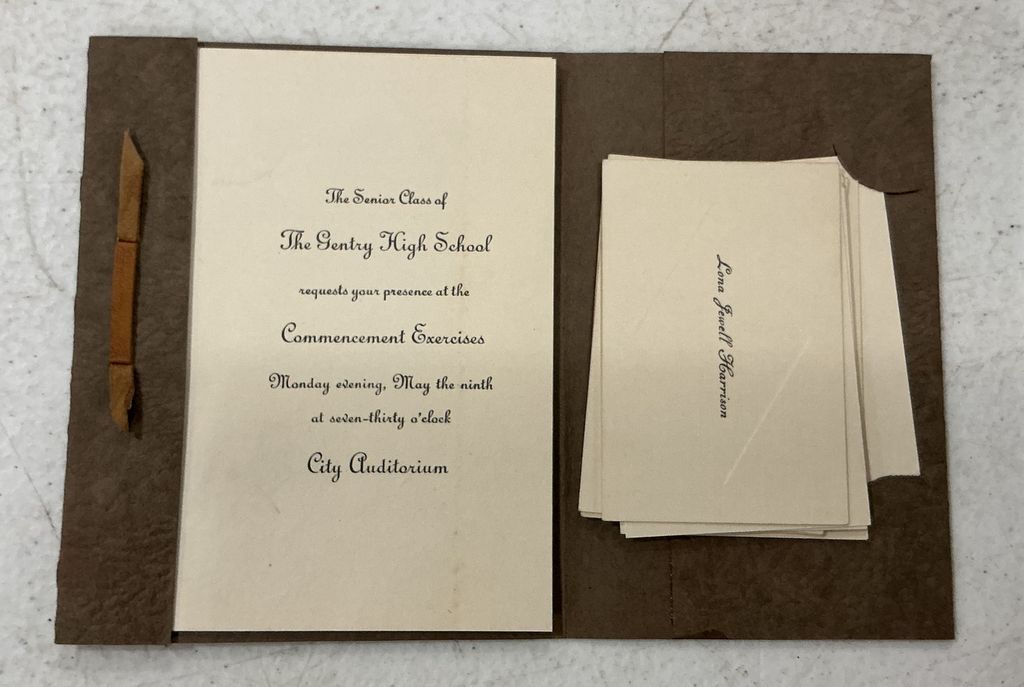 The Senior Class of
The Gentry High School
requests your presence at the
Commencement Exercises
Monday evening, May the ninth
at seven-thirty o'clock
City Auditorium
Lona Jewell Harrison